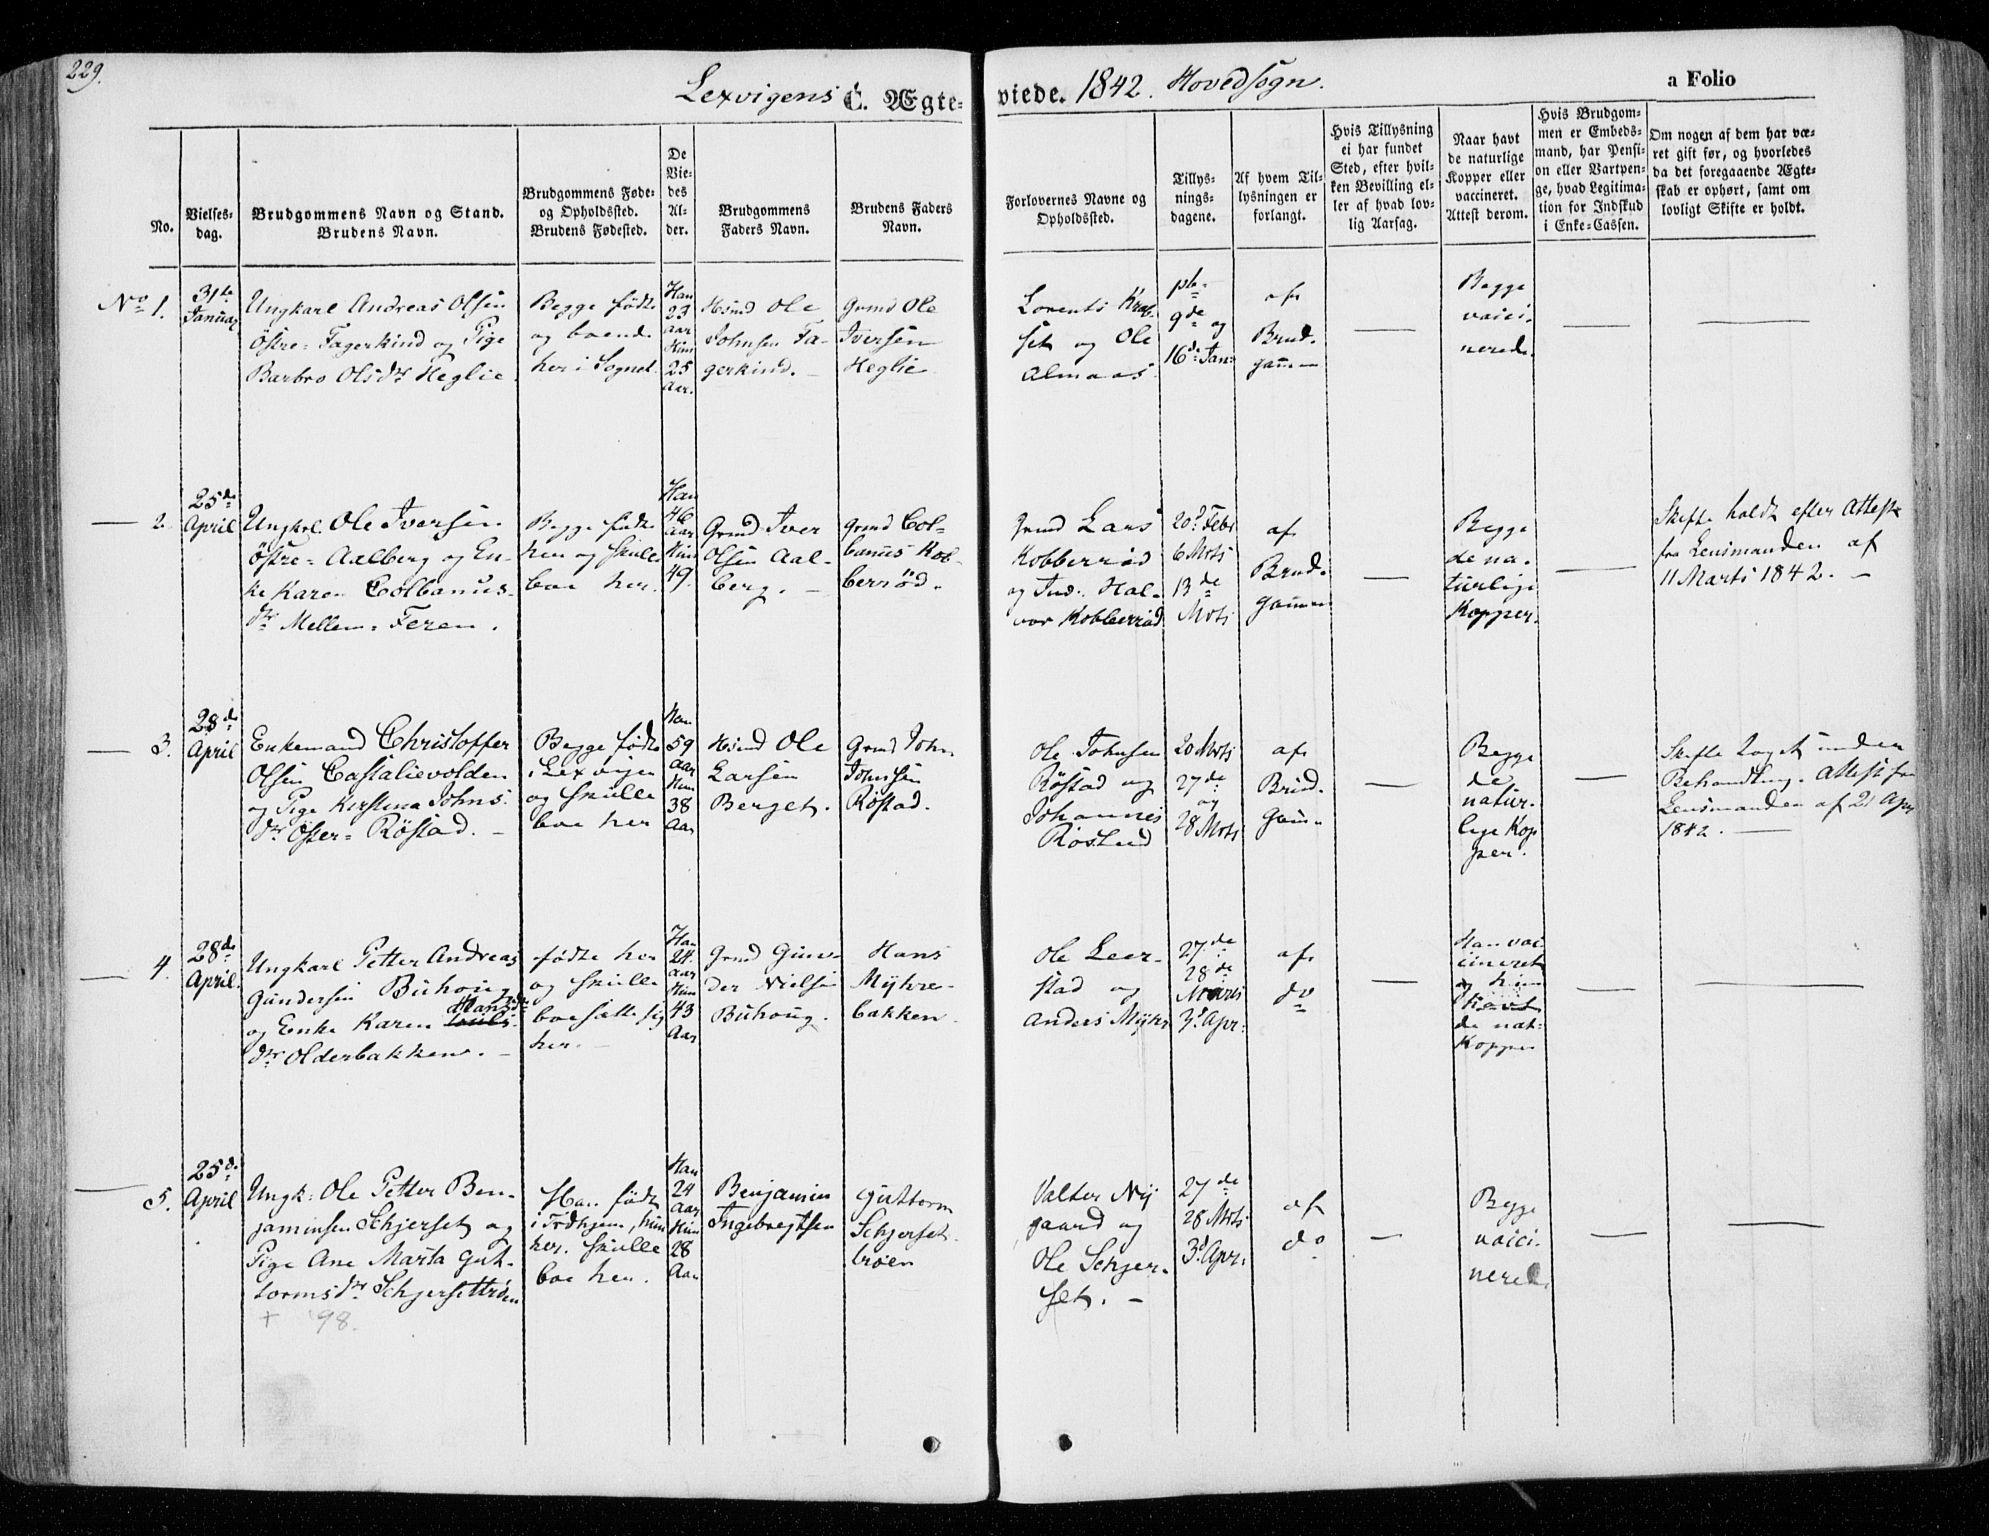 229.
Lexvigens C. Ægte-
viede. 1842. Hovedsogn.
a Folio
No.
Vielses-
dag.
Brudgommens Navn og Stand.
Brudens Navn.
Brudgommens Føde-
og Opholdssted.
Brudens Fødested.
De
Vie-
des
Al-
der.
Brudgommens
Faders Navn.
Brudens Faders
Navn.
Forlovernes Navne og
Opholdssted.
Tillys-
nings-
dagene.
Af hvem Til-
lysningen er
forlangt.
Hvis Tillysning
ei har fundet
Sted, efter hvil-
ken Bevilling el-
ler af hvad lov-
lig Aarsag.
Naar havt
de naturlige
Kopper eller
vaccineret.
Attest derom.
Hvis Brudgom-
men er Embeds-
mand, har Pensi-
on eller Vartpen-
ge, hvad Legitima-
tion for Indskud
i Enke-Cassen.
Om nogen af dem har væ-
ret gift før, og hvorledes
da det foregaaende Ægte-
skab er ophørt, samt om
lovligt Skifte er holdt.
No 1.
31te
Januar
Ungkarl Andreas Olsen
Östre-Fagerkind og Pige
Barbro Olsdr Heglie
Begge födte
og boende
her i Sognet.
Han
23
aar
Hun
25
Aar.
Hsmd Ole
Johnsen Fa-
gerkind. —
Grmd Ole
Iversen
Heglie
Lorents Kraa-
set og Ole
Almaas.
9de og
16de Jan:
af
Brud-
gommen
—
Begge
vacci-
nerede
—
—
— 2.
25de
April
Ungkrl Ole Iversen
Östre-Aalberg og En-
ke Karen Colbanus-
dr Mellem-Feren.
Begge födte
her og skulle
boe her.
Han
46
aar
Hun
49.
Grmd Iver
Olsen Aal-
berg. —
Grmd Col-
banus Kob-
beröd.
Grmd Lars
Kobberröd
og Ind. Hal-
vor Kobberröd
20d Febr
6 Mrts
13de
Mrts
af
Brud-
gommen
—
Begge
de na-
turlige
Kopper.
—
Skifte holdt efter Attest
fra Lensmanden af
11 Marts 1842. —
— 3.
28de
April
Enkemand Christopher
Olsen Castalievolden
og Pige Kirstina Johns-
dr Öster-Röstad. —
Begge födte
i Lexvigen
og skulle
boe her
Han
59
aar
Hun
38
Aar
Hsmd Ole
Larsen
Berget.
Grmd John
Johnsen
Röstad.
Ole Johnsen
Röstad og
Johannes
Röstad
20 Mrts
27de
og
28 Mrts
af
Brud-
gom-
—
Begge
de
natur-
lige Kop
per.
—
Skifte taget under
Behandling. Attest fra
Lensmanden af 21 Apr
1842. —
— 4.
28de
April.
Ungkarl Petter Andreas
Gundersen Buhoug
og Enke Karen Hansda-
dr Olderbakken. —
födte her
og skulle
boesætte sig
her. —
Han
24
aar
Hun
43
Aar
Grmd Gun-
der Nielsen
Buhoug.
Hans
Myhre-
bakken
Ole Leer-
stad og
Anders Myhr
27de
28de
Marts
3d Apr:
af
do
—
Han vac
cineret
og hun
havt
de nat-
Kopper
—
— 5.
25de
April
Ungk: Ole Petter Ben-
jaminsen Schjerset og
Pige Ane Marta Gut-
tormsdr Schjersettröen
+ 98.
Han född
i Trdhjem, hun
her. Skulle
boe her.
Han
24
Aar
Hun
28
Aar
Benjamin
Ingebregtsen
Guttorm
Schjerset-
tröen
Valter Ny
gaard og
Ole Schjer-
set. —
27de
28 Mrts
3d Apr:
af
do
—
Begge
vacci-
nerede
—
—